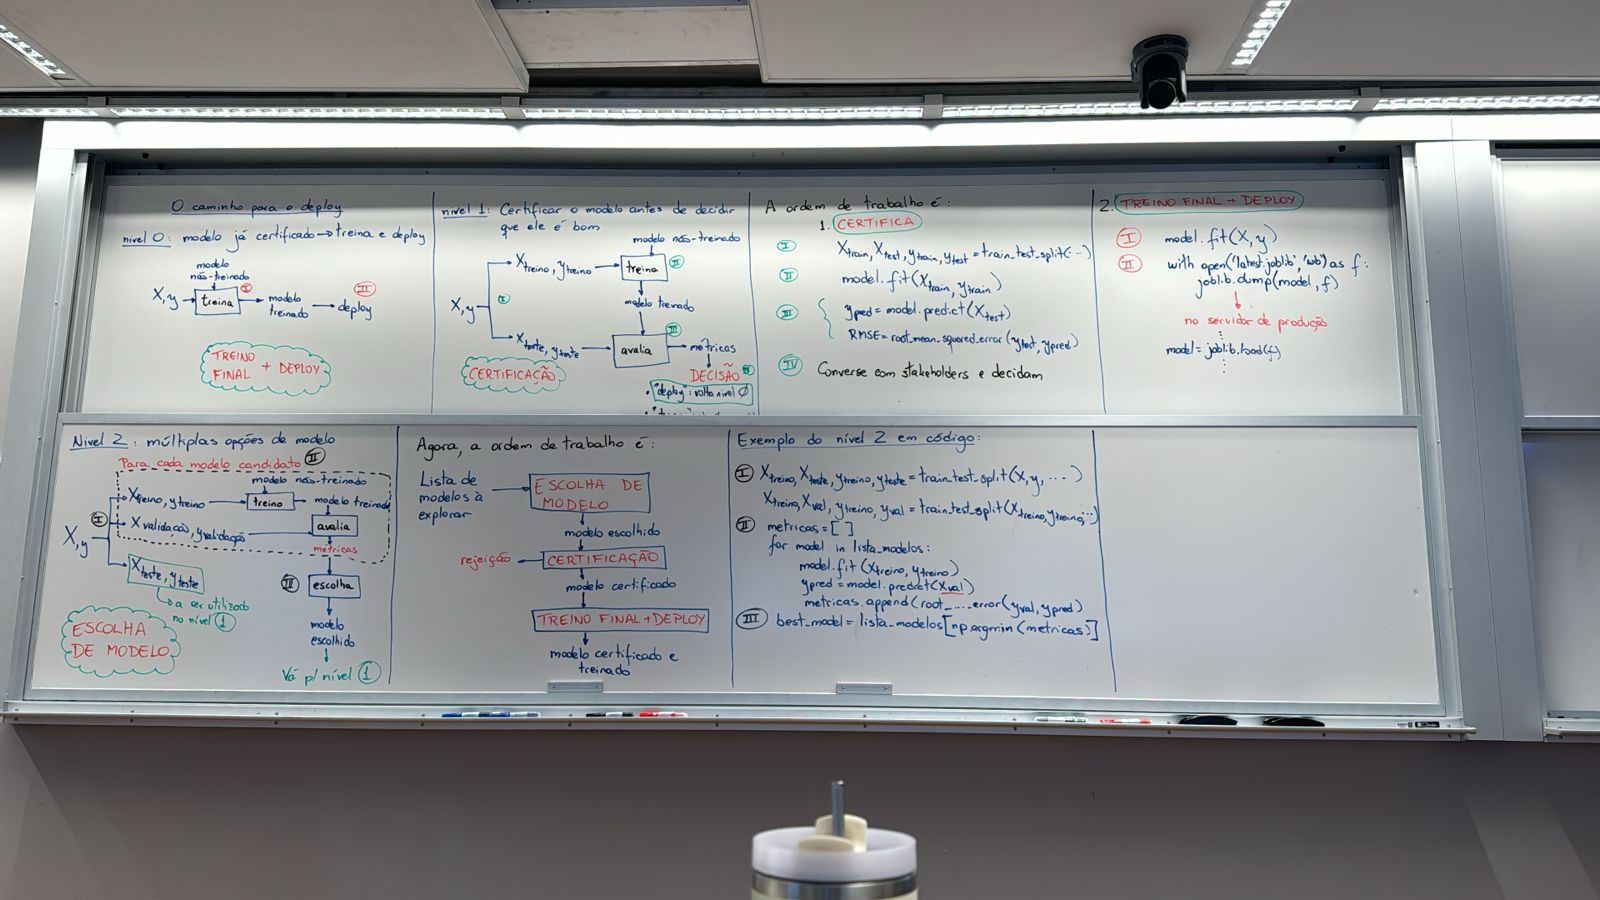 O caminho para o deploy
nível 0: modelo já certificado → treina e deploy
modelo
não-treinado
X, y → treina I → modelo
treinado → deploy II
TREINO
FINAL + DEPLOY
nível 1: Certificar o modelo antes de decidir
que ele é bom
modelo não-treinado
Xtreino, ytreino → treina II
X, y I
modelo treinado
III
Xteste, yteste → avalia → métricas
CERTIFICAÇÃO
DECISÃO
• "deploy": volta nível 0
A ordem de trabalho é:
1. CERTIFICA
I Xtrain, Xtest, ytrain, ytest = train_test_split(...)
II model.fit(Xtrain, ytrain)
III ypred = model.predict(Xtest)
RMSE = root_mean_squared_error(ytest, ypred)
IV Converse com stakeholders e decidam
2. TREINO FINAL + DEPLOY
I model.fit(X, y)
II with open('latest.joblib', 'wb') as f:
joblib.dump(model, f)
no servidor de produção
model = joblib.load(f)
Nível 2: múltiplas opções de modelo
Para cada modelo candidato II
modelo não-treinado
Xtreino, ytreino → treino → modelo treinado
I Xvalidação, yvalidação → avalia
X, y
métricas
Xteste, yteste
→ a ser utilizado
no nível 1
III escolha
modelo
escolhido
Vá p/ nível 1
ESCOLHA
DE MODELO
Agora, a ordem de trabalho é:
Lista de
modelos à
explorar → ESCOLHA DE
MODELO
modelo escolhido
rejeição ← CERTIFICAÇÃO
modelo certificado
TREINO FINAL + DEPLOY
modelo certificado e
treinado
Exemplo do nível 2 em código:
I Xtreino, Xteste, ytreino, yteste = train_test_split(X, y, ...)
Xtreino, Xval, ytreino, yval = train_test_split(Xtreino, ytreino, ...)
II metricas = [ ]
for model in lista_modelos:
model.fit(Xtreino, ytreino)
ypred = model.predict(Xval)
metricas.append(root_..._error(yval, ypred)
III best_model = lista_modelos[np.argmin(metricas)]